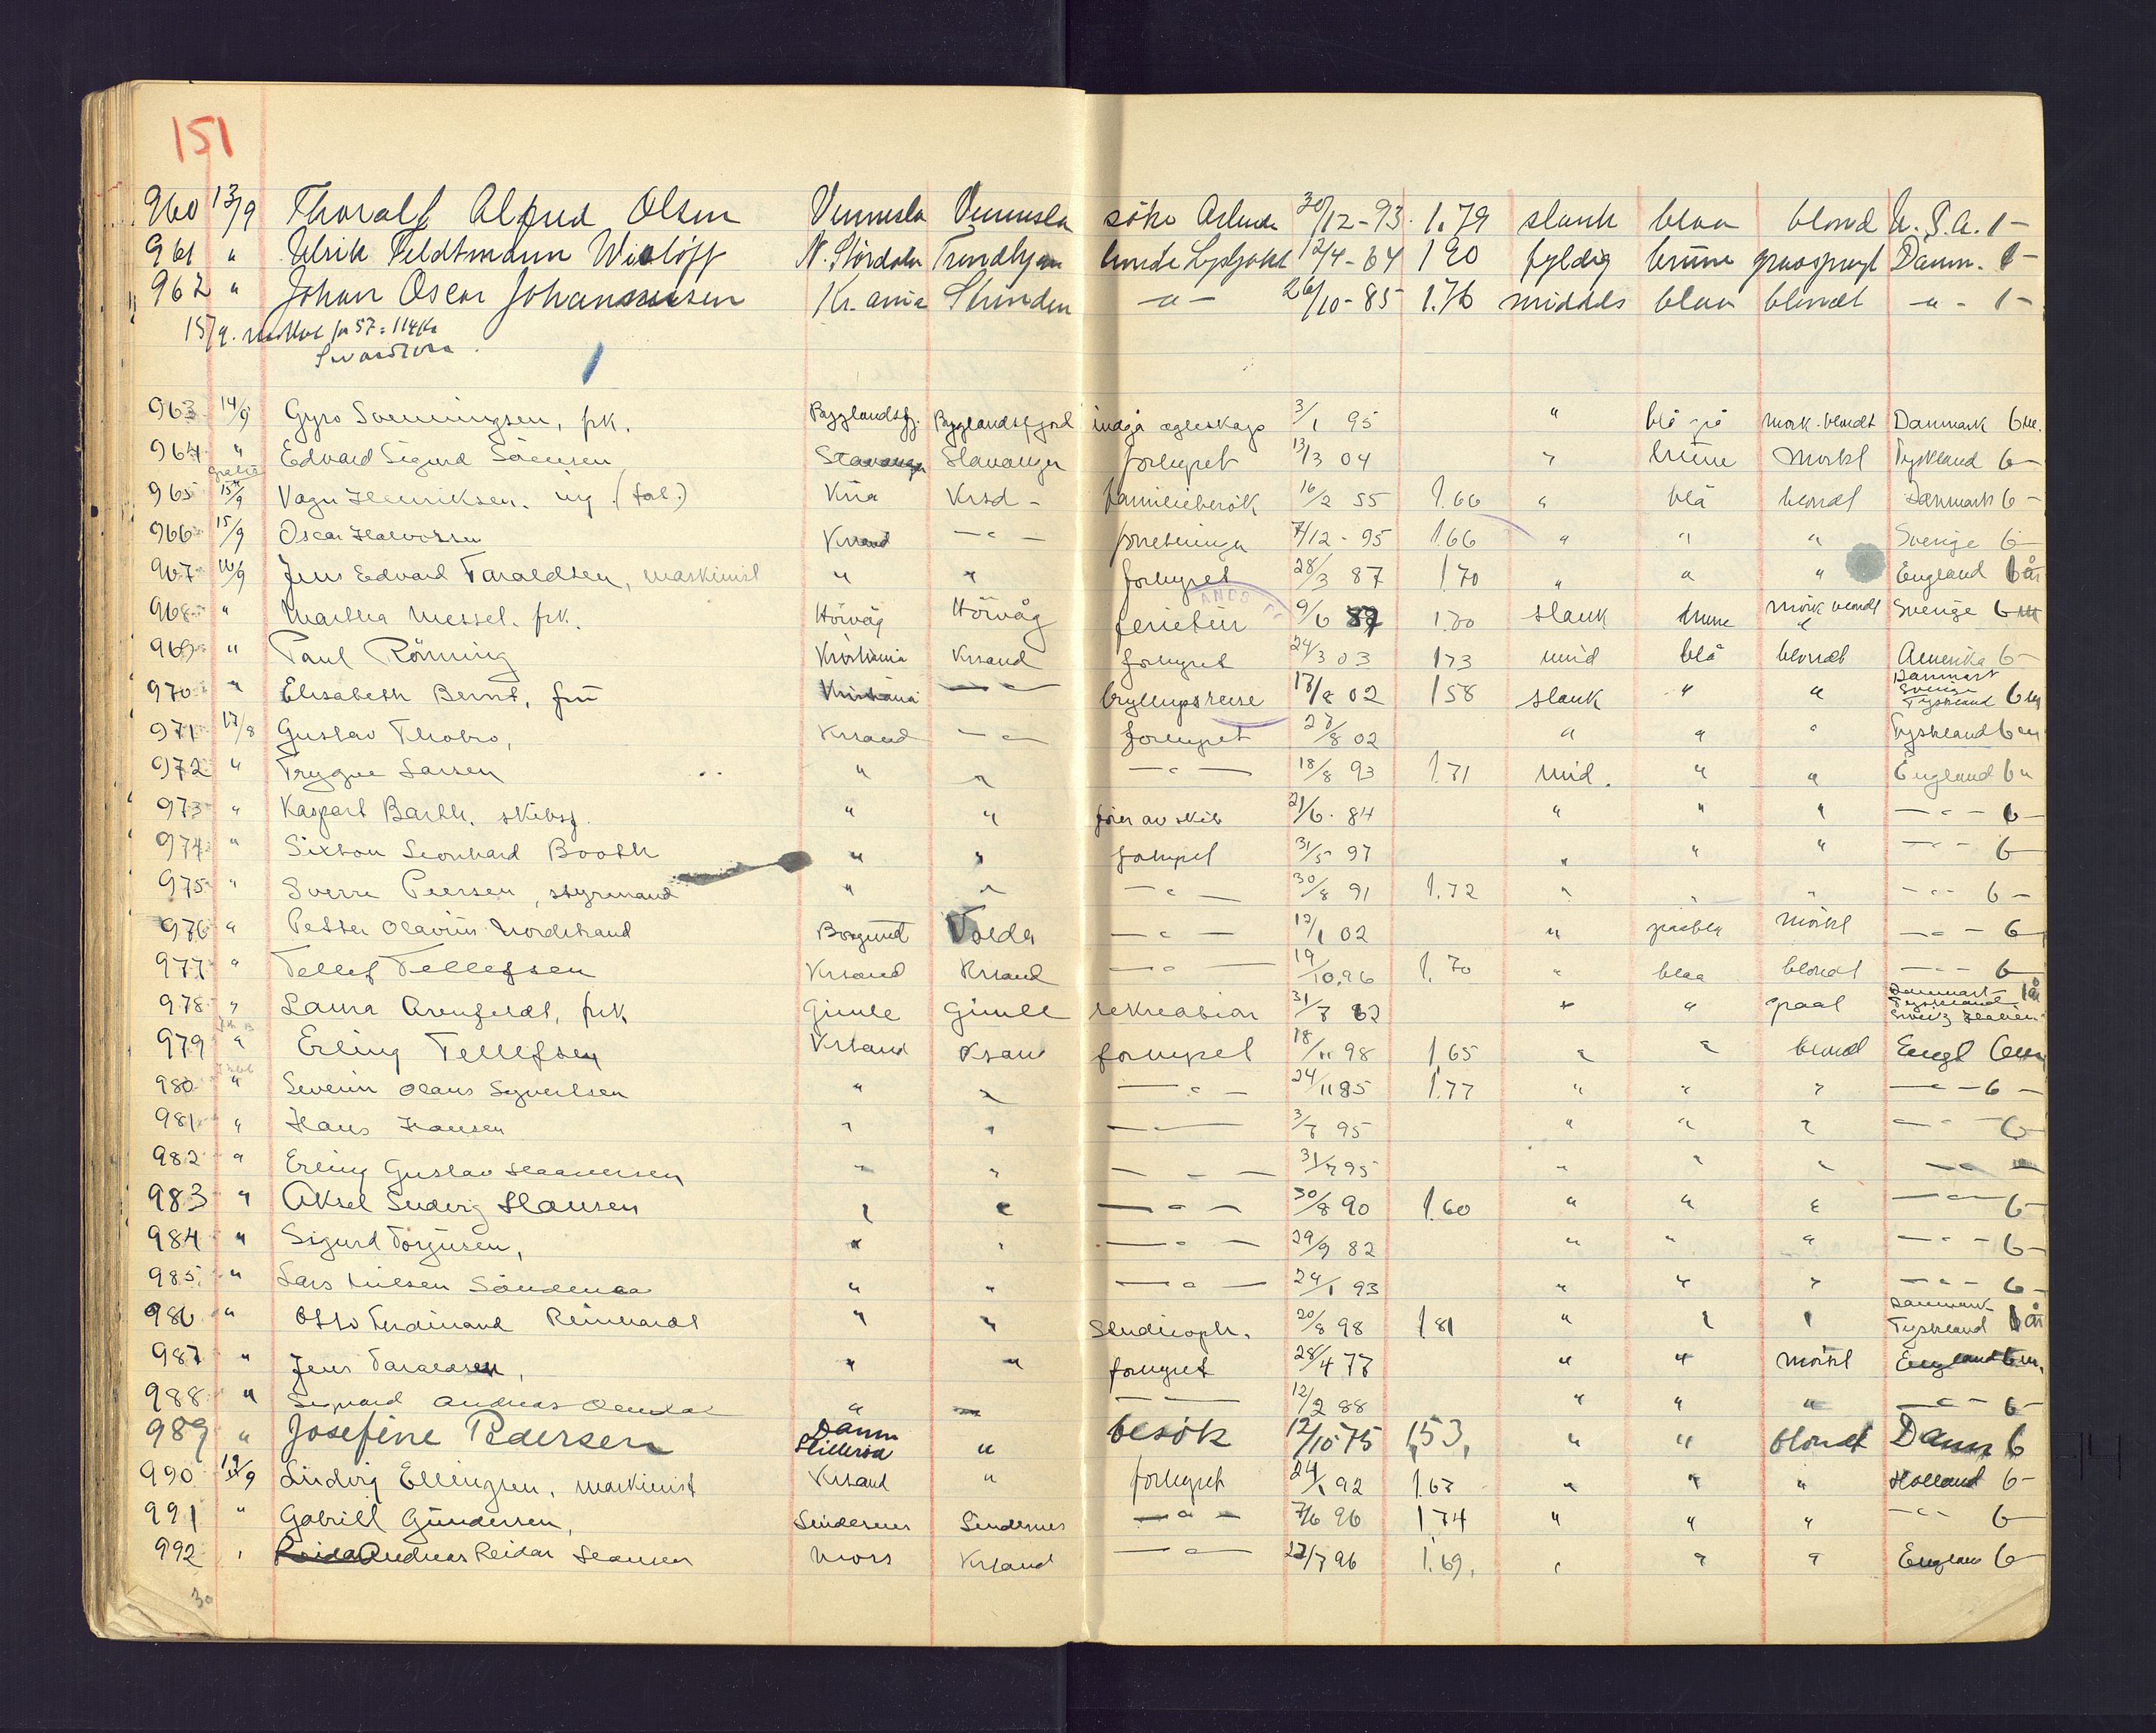 151
960 13/9 Thoralf Alfred Olsen Vennesla Vennesla söke Arbeide 30/12-93 1.79 slank blaa blond U.S.A. 1 -
961 " Ulrik Feldtmann Wieløff N. Stördalen Trondhjem 12/4-64 1 90 fyldig brune graasprengt Danm. 1 -
962 " Johan Oscar Johannesen Kr.ania Grimden - " - 26/10-85 1.76 middels blaa blondt - " - 1 -
15/9. mottat for 57 = 114 Kr
963 14/9 Gyro Svenningsen, frk. Byglandsfj. Byglandsfjord indgå egteskap 3/1 95 " blå grå mørk blondt Danmark 6 m.
964 " Edvard Sigurd Sörensen Stavanger Stavanger forhyret 13/3 04 " brune mørkt Tyskland 6 -
gratis
965 15/9 Vagn Henriksen. ing. (fal.) Kria Krsd - familiebesök 16/2 55 1.66 " blå blondt Danmark 6 -
966 15/9 Oscar Halvorsen Krsand - " - forretninger 7/12 - 95 1.66 " " " Sverige 6 -
967 16/9 Jens Edvard Taraldsen, maskinist " " forhyret 28/3 87 1.70 " " " England 1 år
968 " Martha Messel. frk. Hörvåg Hörvåg ferietur 9/6 87 1.70 slank brune mörk blondt Sverige 6 m
969 " Paul Rönning Kristiania Krsand forhyret 24/3 03 1 73 mid blå blondt Amerika 6 -
970 " Elisabeth Bernt, fru Kristiania - " - bryllupsreise 17/8 02 1 58 slank " " Danmark Sverige Tyskland 6 m
971 17/8 Gustav Thobro, Krsand - " - forhyret 27/8 02 " " " Tyskland 6 m
972 " Trygve Larsen " " - " - 18/8 93 1.71 mid. " " England 6 "
973 " Kaspart Barth. skibsf. " " förer av skib 21/6 - 84 " " " - " - 6 -
974 " Sixton Leonhard Booth " " forhyret 31/5 97 " " " - " - 6 -
975 " Sverre Peersen, styrmand " " - " - 30/8 91 1.72 " " " - " - 6 -
976 " Petter Olavius Nordstrand Borgund Volda - " - 17/1 02 " graablaa mörkt - " - 6 -
977 " Tellef Tellefsen Krsand Krsand - " - 19/10.96 1.70 " blaa blondt - " - 6 -
978 " Laura Arenfeldt, frk. Gimle Gimle rekreation 31/7 62 " " graat Danmark Tyskland Sveitz Italien 1 år
979 " Erling Tellefsen Krsand Ksand forhyret 18/11 98 1.65 " " blond Engl 6 m
980 " Severin Olaus Syvertsen " " - " - 24/11 85 1.77 " " " - " - 6 -
981 " Hans Hansen " " - " - 3/7 95 " " " - " - 6 -
982 " Erling Gustav Haaversen " " - " - 31/7 95 " " " - " -
983 " Aksel Ludvig Hansen " " - " - 30/8 90 1.60 " " " - " - 6 -
984 " Sigurd Torjusen, " " - " - 29/9 82 " " " - " - 6 -
985 " Lars Nilsen Söndenaa " " - " - 24/1 93 " " " - " - 6 -
986 " Otto Ferdinand Reinhardt " " Studieoph. 20/8 98 1 81 " " " Danmark Tyskland 1 år
987 " Jens Taraldsen, " " forhyret 28/4 77 " " mörkt England 6 m.
988 " Sigvard Andreas " - 12/2 88 " " " - " - 6 -
989 " Josefine Pedersen Danm Hilleröd " besök 12/10 75 1,53, " " blondt Danm 6
990 19/9 Ludvig Ellingsen, maskinist Krsand " forhyret 24/1 92 1.67 " " " Holland 6 -
991 " Gabriel Gundersen, Lindesnes Lindesnes - " - 7/6 96 1 74 " " " - " - 6 -
992 " Andreas Reidar Moss Krsand - " - 27/7 96 1.69, " " " England 6 -
30